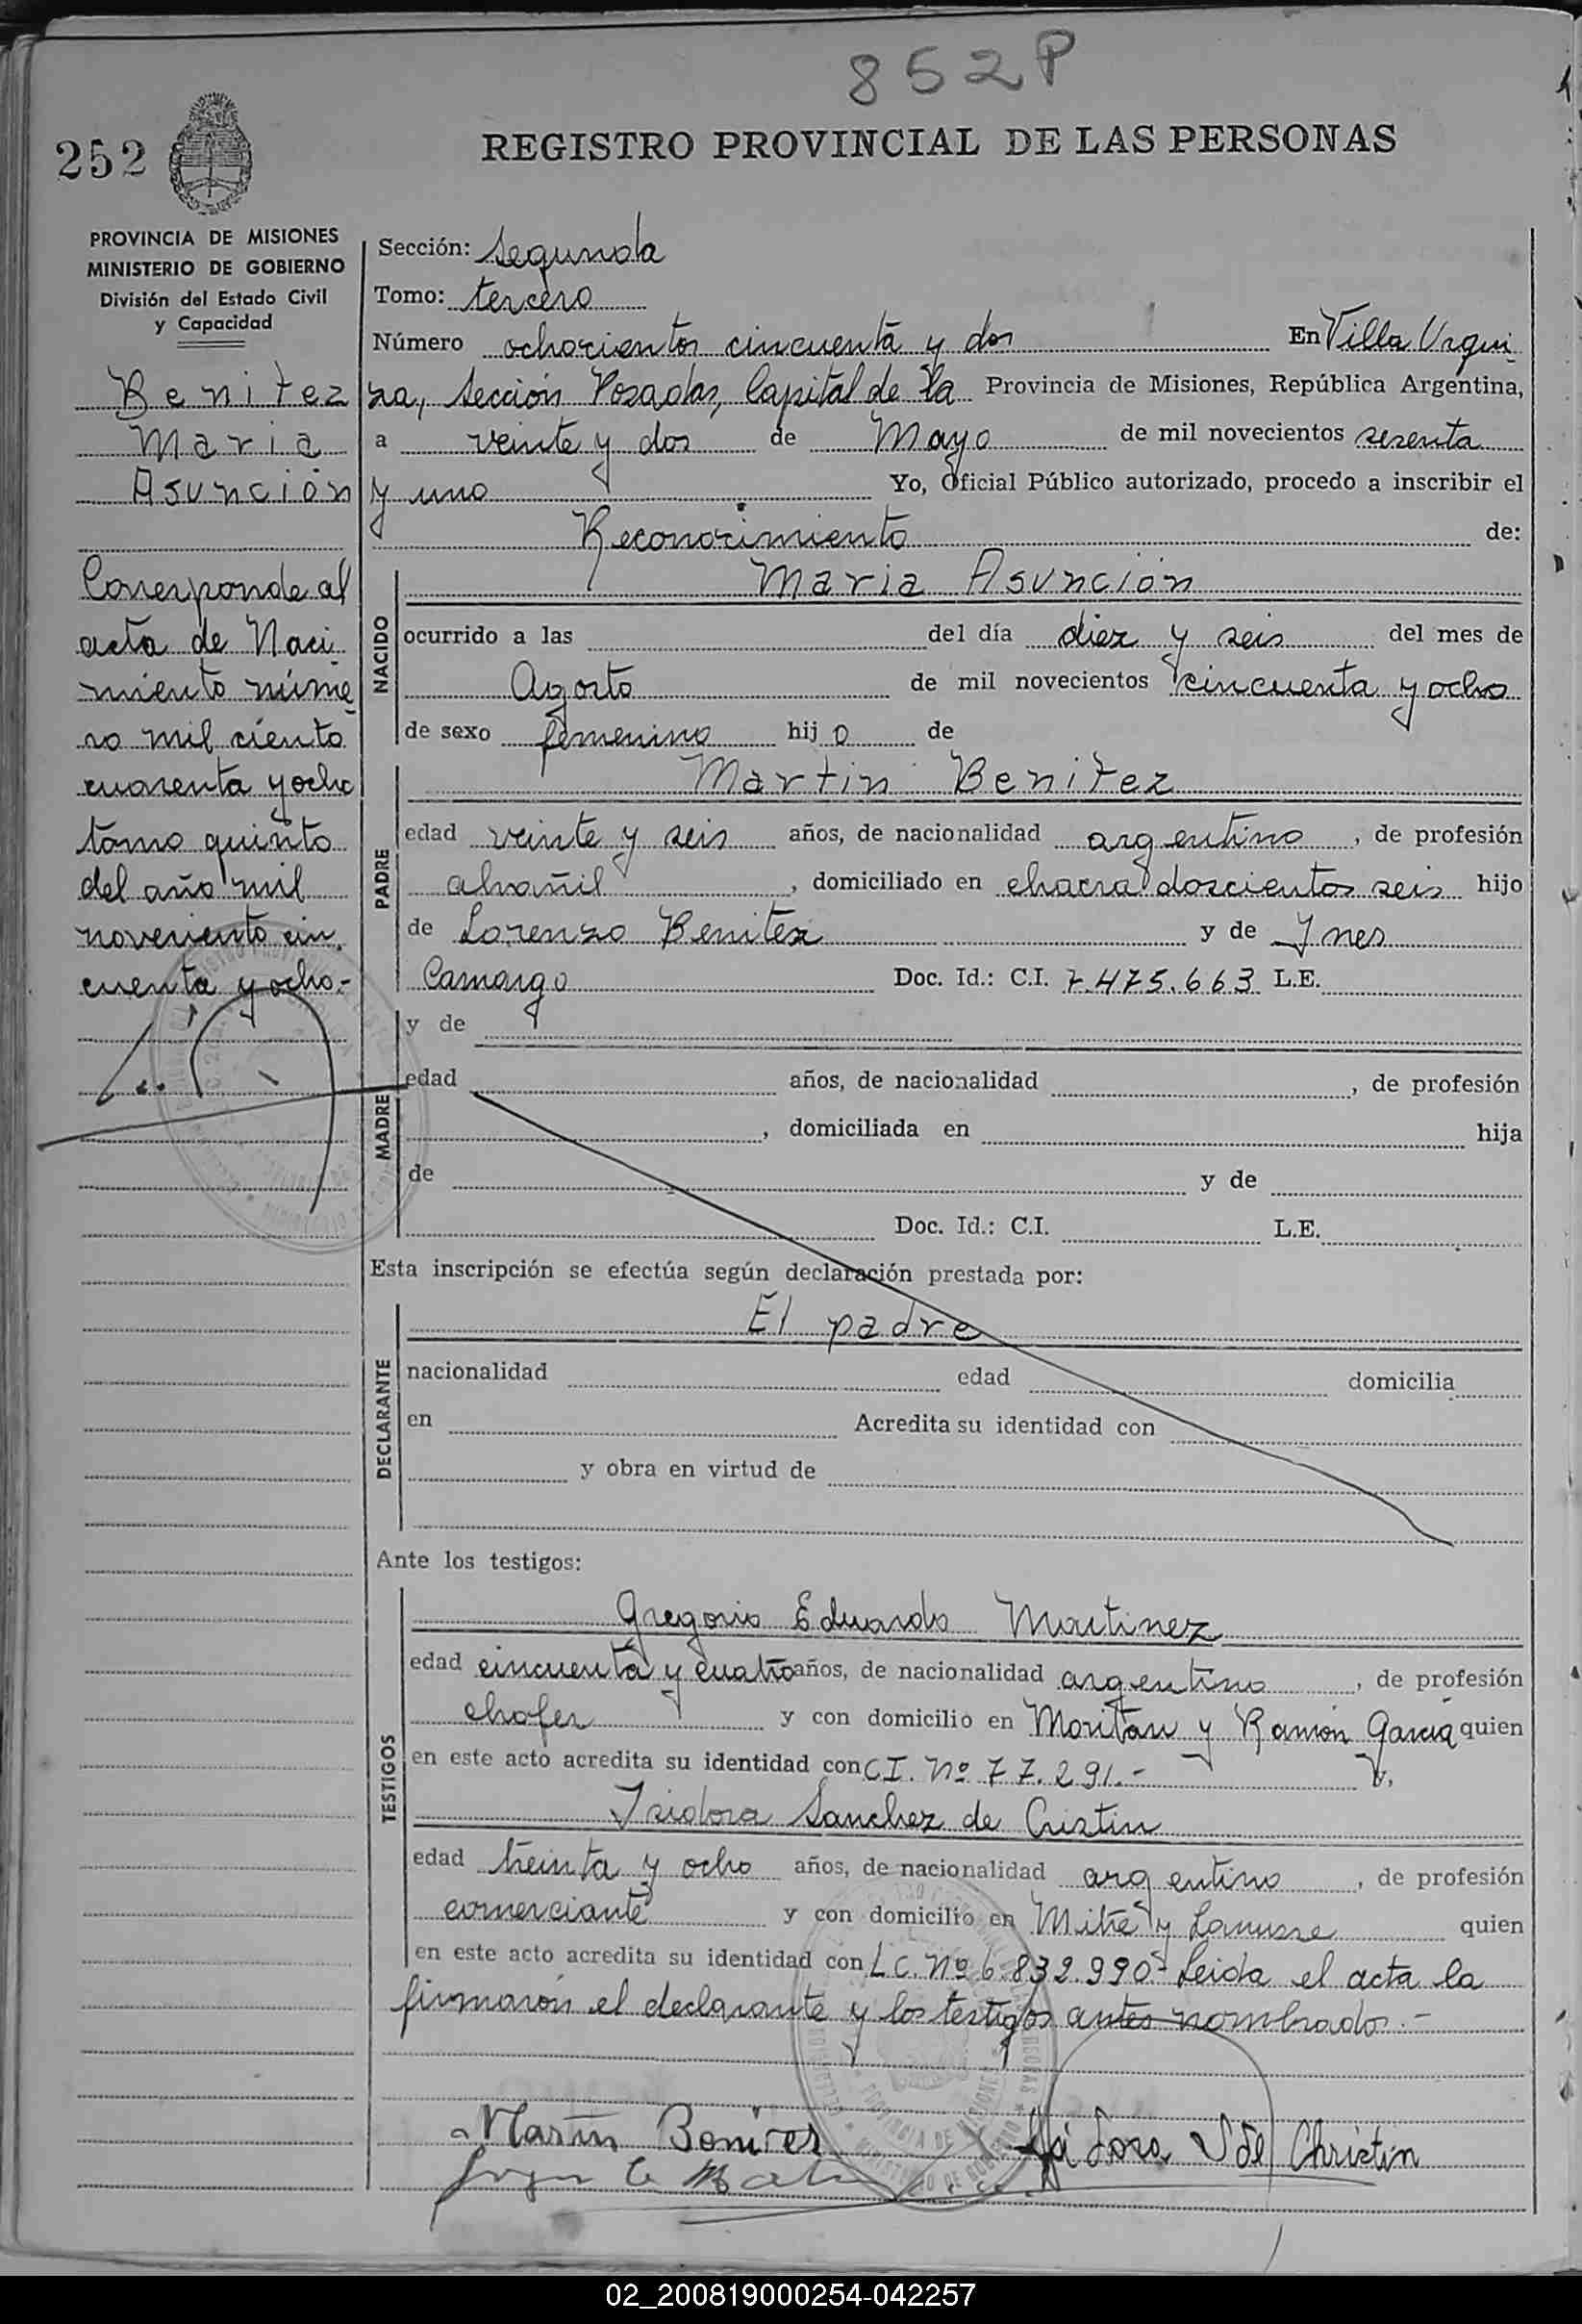 852P
252
REGISTRO PROVINCIAL DE LAS PERSONAS
PROVINCIA DE MISIONES
MINISTERIO DE GOBIERNO
División del Estado Civil
y Capacidad
Benitez
Maria
Asunción
Corresponde al
acta de Naci-
miento núme-
ro mil ciento
cuarenta y ocho
tomo quinto
del año mil
noveciento cin-
cuenta y ocho.-
Sección: Segunda
Tomo: tercero
Número ochocientos cincuenta y dos En Villa Urqui-
za, Sección Posadas, Capital de la Provincia de Misiones, República Argentina,
a veinte y dos de Mayo de mil novecientos sesenta
y uno Yo, Oficial Público autorizado, procedo a inscribir el
Reconocimiento de:
NACIDO
Maria Asunción
ocurrido a las del día diez y seis del mes de
Agosto de mil novecientos cincuenta y ocho
de sexo femenino hijo de
PADRE
Martin Benitez
edad veinte y seis años, de nacionalidad argentino, de profesión
albañil, domiciliado en chacra doscientos seis hijo
de Lorenzo Benitez y de Ynes
Camargo Doc. Id.: C.I. 7.475.663 L.E.
MADRE
y de
edad años, de nacionalidad , de profesión
, domiciliada en hija
de y de
Doc. Id.: C.I. L.E.
Esta inscripción se efectúa según declaración prestada por:
DECLARANTE
El padre
nacionalidad edad domicilia
en Acredita su identidad con
y obra en virtud de
Ante los testigos:
TESTIGOS
Gregorio Eduardo Martinez
edad cincuenta y cuatro años, de nacionalidad argentino, de profesión
chofer y con domicilio en Moritan y Ramón Garcia quien
en este acto acredita su identidad con C I. Nº 77.291.- y,
Isidora Sanchez de Cristin
edad treinta y ocho años, de nacionalidad argentino, de profesión
comerciante y con domicilio en Mitre y Lanusse quien
en este acto acredita su identidad con L C. Nº 6.832.990- Leida el acta la
firmaron el declarante y los testigos antes nombrados.-
Martin Benites
Isidora S de Christin
02_200819000254-042257